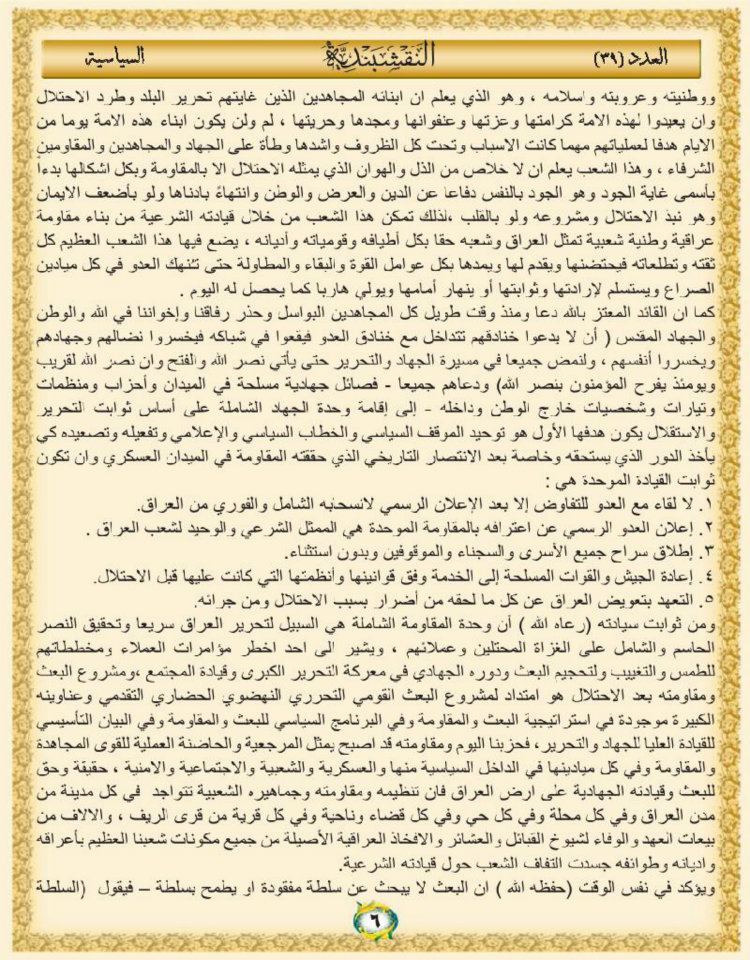 العدد (٣٩)
النقشبندية
السياسية
ووطنيته وعروبته وإسلامه ، وهو الذي يعلم ان ابنائه المجاهدين الذين غايتهم تحرير البلد وطرد الاحتلال
وان يعيدوا لهذه الامة كرامتها وعزتها وعنفوانها ومجدها وحريتها ، لم ولن يكون ابناء هذه الامة يوما من
الايام هدفا لعملياتهم مهما كانت الاسباب وتحت كل الظروف واشدها وطأة على الجهاد والمجاهدين والمقاومين
الشرفاء ، وهذا الشعب يعلم ان لا خلاص من الذل والهوان الذي يمثله الاحتلال الا بالمقاومة وبكل اشكالها بدءاً
بأسمى غاية الجود وهو الجود بالنفس دفاعا عن الدين والعرض والوطن وانتهاءً بادناها ولو بأضعف الايمان
وهو نبذ الاحتلال ومشروعه ولو بالقلب ،لذلك تمكن هذا الشعب من خلال قيادته الشرعية من بناء مقاومة
عراقية وطنية شعبية تمثل العراق وشعبه حقا بكل أطيافه وقومياته وأديانه ، يضع فيها هذا الشعب العظيم كل
ثقته وتطلعاته فيحتضنها ويقدم لها ويمدها بكل عوامل القوة والبقاء والمطاولة حتى تنهك العدو في كل ميادين
الصراع ويستسلم لإرادتها وثوابتها أو ينهار أمامها ويولي هاربا كما يحصل له اليوم .
كما ان القائد المعتز بالله دعا ومنذ وقت طويل كل المجاهدين البواسل وحذر رفاقنا وإخواننا في الله والوطن
والجهاد المقدس ( أن لا يدعوا خنادقهم تتداخل مع خنادق العدو فيقعوا في شباكه فيخسروا نضالهم وجهادهم
ويخسروا أنفسهم ، ولنمض جميعا في مسيرة الجهاد والتحرير حتى يأتي نصر الله والفتح وان نصر الله لقريب
ويومئذ يفرح المؤمنون بنصر الله) ودعاهم جميعا - فصائل جهادية مسلحة في الميدان وأحزاب ومنظمات
وتيارات وشخصيات خارج الوطن وداخله - إلى إقامة وحدة الجهاد الشاملة على أساس ثوابت التحرير
والاستقلال يكون هدفها الأول هو توحيد الموقف السياسي والخطاب السياسي والإعلامي وتفعيله وتصعيده كي
يأخذ الدور الذي يستحقه وخاصة بعد الانتصار التاريخي الذي حققته المقاومة في الميدان العسكري وان تكون
ثوابت القيادة الموحدة هي :
١. لا لقاء مع العدو للتفاوض إلا بعد الإعلان الرسمي لانسحابه الشامل والفوري من العراق.
٢. إعلان العدو الرسمي عن اعترافه بالمقاومة الموحدة هي الممثل الشرعي والوحيد لشعب العراق .
٣. إطلاق سراح جميع الأسرى والسجناء والموقوفين وبدون استثناء.
٤. إعادة الجيش والقوات المسلحة إلى الخدمة وفق قوانينها وأنظمتها التي كانت عليها قبل الاحتلال.
٥. التعهد بتعويض العراق عن كل ما لحقه من أضرار بسبب الاحتلال ومن جرائه.
ومن ثوابت سيادته (رعاه الله ) أن وحدة المقاومة الشاملة هي السبيل لتحرير العراق سريعا وتحقيق النصر
الحاسم والشامل على الغزاة المحتلين وعملائهم ، ويشير الى احد اخطر مؤامرات العملاء ومخططاتهم
للطمس والتغييب ولتحجيم البعث ودوره الجهادي في معركة التحرير الكبرى وقيادة المجتمع ،ومشروع البعث
ومقاومته بعد الاحتلال هو امتداد لمشروع البعث القومي التحرري النهضوي الحضاري التقدمي وعناوينه
الكبيرة موجودة في استراتيجية البعث والمقاومة وفي البرنامج السياسي للبعث والمقاومة وفي البيان التأسيسي
للقيادة العليا للجهاد والتحرير، فحزبنا اليوم ومقاومته قد اصبح يمثل المرجعية والحاضنة العملية للقوى المجاهدة
والمقاومة وفي كل ميادينها في الداخل السياسية منها والعسكرية والشعبية والاجتماعية والامنية ، حقيقة وحق
للبعث وقيادته الجهادية على ارض العراق فان تنظيمه ومقاومته وجماهيره الشعبية تتواجد في كل مدينة من
مدن العراق وفي كل محلة وفي كل حي وفي كل قضاء وناحية وفي كل قرية من قرى الريف ، والالاف من
بيعات العهد والوفاء لشيوخ القبائل والعشائر والافخاذ العراقية الأصيلة من جميع مكونات شعبنا العظيم بأعراقه
واديانه وطوائفه جسدت التفاف الشعب حول قيادته الشرعية.
ويؤكد في نفس الوقت (حفظه الله ) ان البعث لا يبحث عن سلطة مفقودة او يطمح بسلطة – فيقول (السلطة
٦